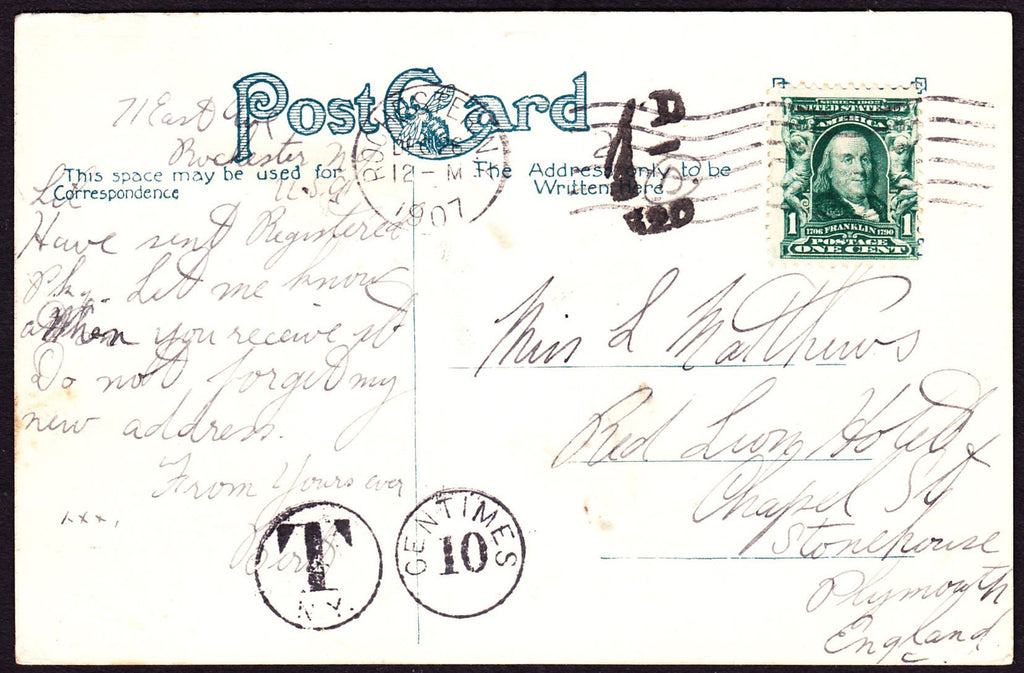 Post Card
This space may be used for
Correspondence
The Address only to be
Written here
ROCHESTER N.Y.
12-M
1907
1D
420
SERIES 1902
UNITED STATES OF
AMERICA
1 1
1706 FRANKLIN 1790
POSTAGE
ONE CENT
Rochester N.Y.
U.S.A
Have sent Registered
Pkg. Let me know
When you receive it
Do not forget my
new address.
From Yours ever
xxx,
T
N.Y.
CENTIMES
10
Miss L Matthews
Red Lion Hotel
Chapel St
Stonehouse
Plymouth
England